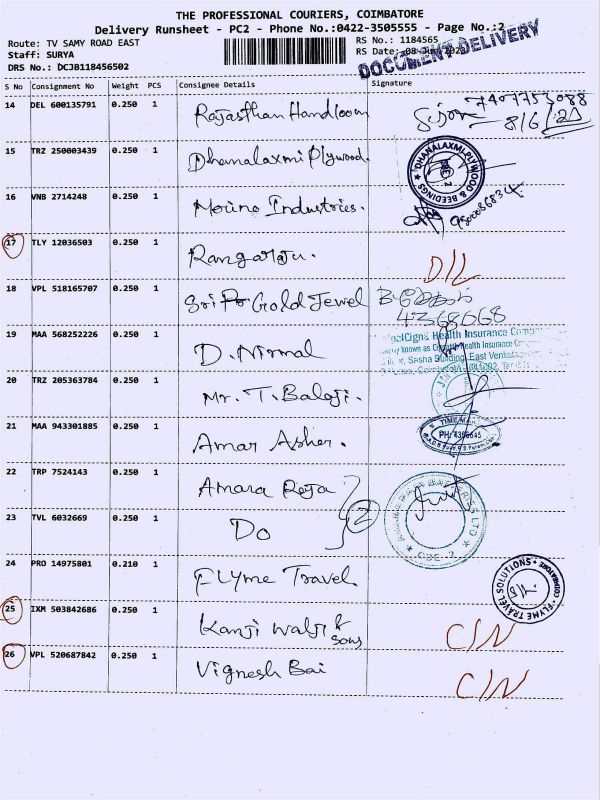 THE PROFESSIONAL COURIERS, COIMBATORE
Delivery Runsheet - PC2 - Phone No.:0422-3505555 - Page No.:2
Route: TV SAMY ROAD EAST
Staff: SURYA
DRS No.: DCJB118456502
RS No.: 1184565
RS Date: 08 Jun 2023
DOCUMENT DELIVERY
S No Consignment No Weight PCS Consignee Details Signature
14 DEL 600135791 0.250 1 Rajasthan Handloom
8/6/23
15 TRZ 250003439 0.250 1 Dhanalaxmi Plywood.
DHANALAXMI PLYWOOD & BEEDINGS
16 VNB 2714248 0.250 1 Merino Industries.
17 TLY 12036503 0.250 1 Rangaraju. D/L
18 VPL 518165707 0.250 1 Sri Gold Jewel
4368068
19 MAA 568252226 0.250 1 D. Nirmal
Health Insurance
known as Health Insurance
Sasha Building, East
20 TRZ 205363784 0.250 1 Mr. T. Balaji.
21 MAA 943301885 0.250 1 Amar Asher.
22 TRP 7524143 0.250 1 Amara Raja
23 TVL 6032669 0.250 1 Do 2
CBE - 2
24 PRO 14975801 0.210 1 FLYme Travel
FLYME TRAVEL SOLUTIONS COIMBATORE
25 IXM 503842686 0.250 1 Kanji Walji & Sons C/N
26 VPL 520687842 0.250 1 Vignesh Bai C/N